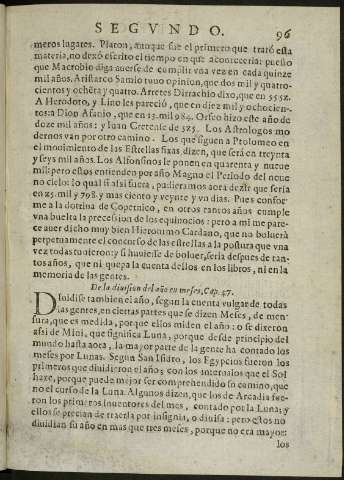 SEGVNDO. 96
meros lugares. Platon, aunque fue el primero que trató esta
materia, no dexó escrito el tiempo en que aconteceria: puesto
que Macrobio diga auerse de cumplir vna vez en cada quinze
mil años. Aristarco Samio tuuo opinion, que dos mil y quatro-
cientos y ochēta y quatro. Arretes Dirrachio dixo, que en 5552.
A Herodoto, y Lino les pareció, que en diez mil y ochocien-
tos: a Dion Afanio, que en 13. mil 984. Orfeo hizo este año de
doze mil años: y Iuan Cretense de 325. Los Astrologos mo
dernos van por otro camino. Los que siguen a Ptolomeo en
el mouimiento de las Estrellas fixas dizen, que será en treynta
y seys mil años. Los Alfonsinos le ponen en quarenta y nueue
mil: pero estos entienden por año Magno el Periodo del neue
no cielo: lo qual si assi fuera, pudieramos aora dezir que seria
en 25. mil y 798. y mas ciento y veynte y vn dias. Pues confor-
me a la dotrina de Copernico, en otros tantos años cumple
vna buelta la precession de los equinocios: pero a mi me pare-
ce auer dicho muy bien Hieronimo Cardano, que no boluerà
perpetuamente el concurso de las estrellas a la postura que vna
vez todas tuuieron: y si huuiesse de boluer, seria despues de tan-
tos años, que ni quepa la cuenta dellos en los libros, ni en la
memoria de las gentes.
De la diuision del año en meses, Cap. 47.
Diuidise tambien el año, segun la cuenta vulgar de todas
las gentes, en ciertas partes que se dizen Meses, de men-
sura, que es medida, porque ellos miden el año: o se dixeron
assi de Mini, que significa Luna, porque desde principio del
mundo hasta aora, la mayor parte de la gente ha contado los
meses por Lunas. Segun San Isidro, los Egypcios fueron los
primeros que diuidieron el año; con los interualos que el Sol
haze, porque puede mejor ser comprehendido su camino, que
no el curso de la Luna. Algunos dizen, que los de Arcadia fue-
ron los primeros inuentores del mes, contado por la Luna; y
ellos se precian de traerla por insignia, o diuisa: pero estos no
diuidian su año en mas que tres meses, porque no era mayor
los